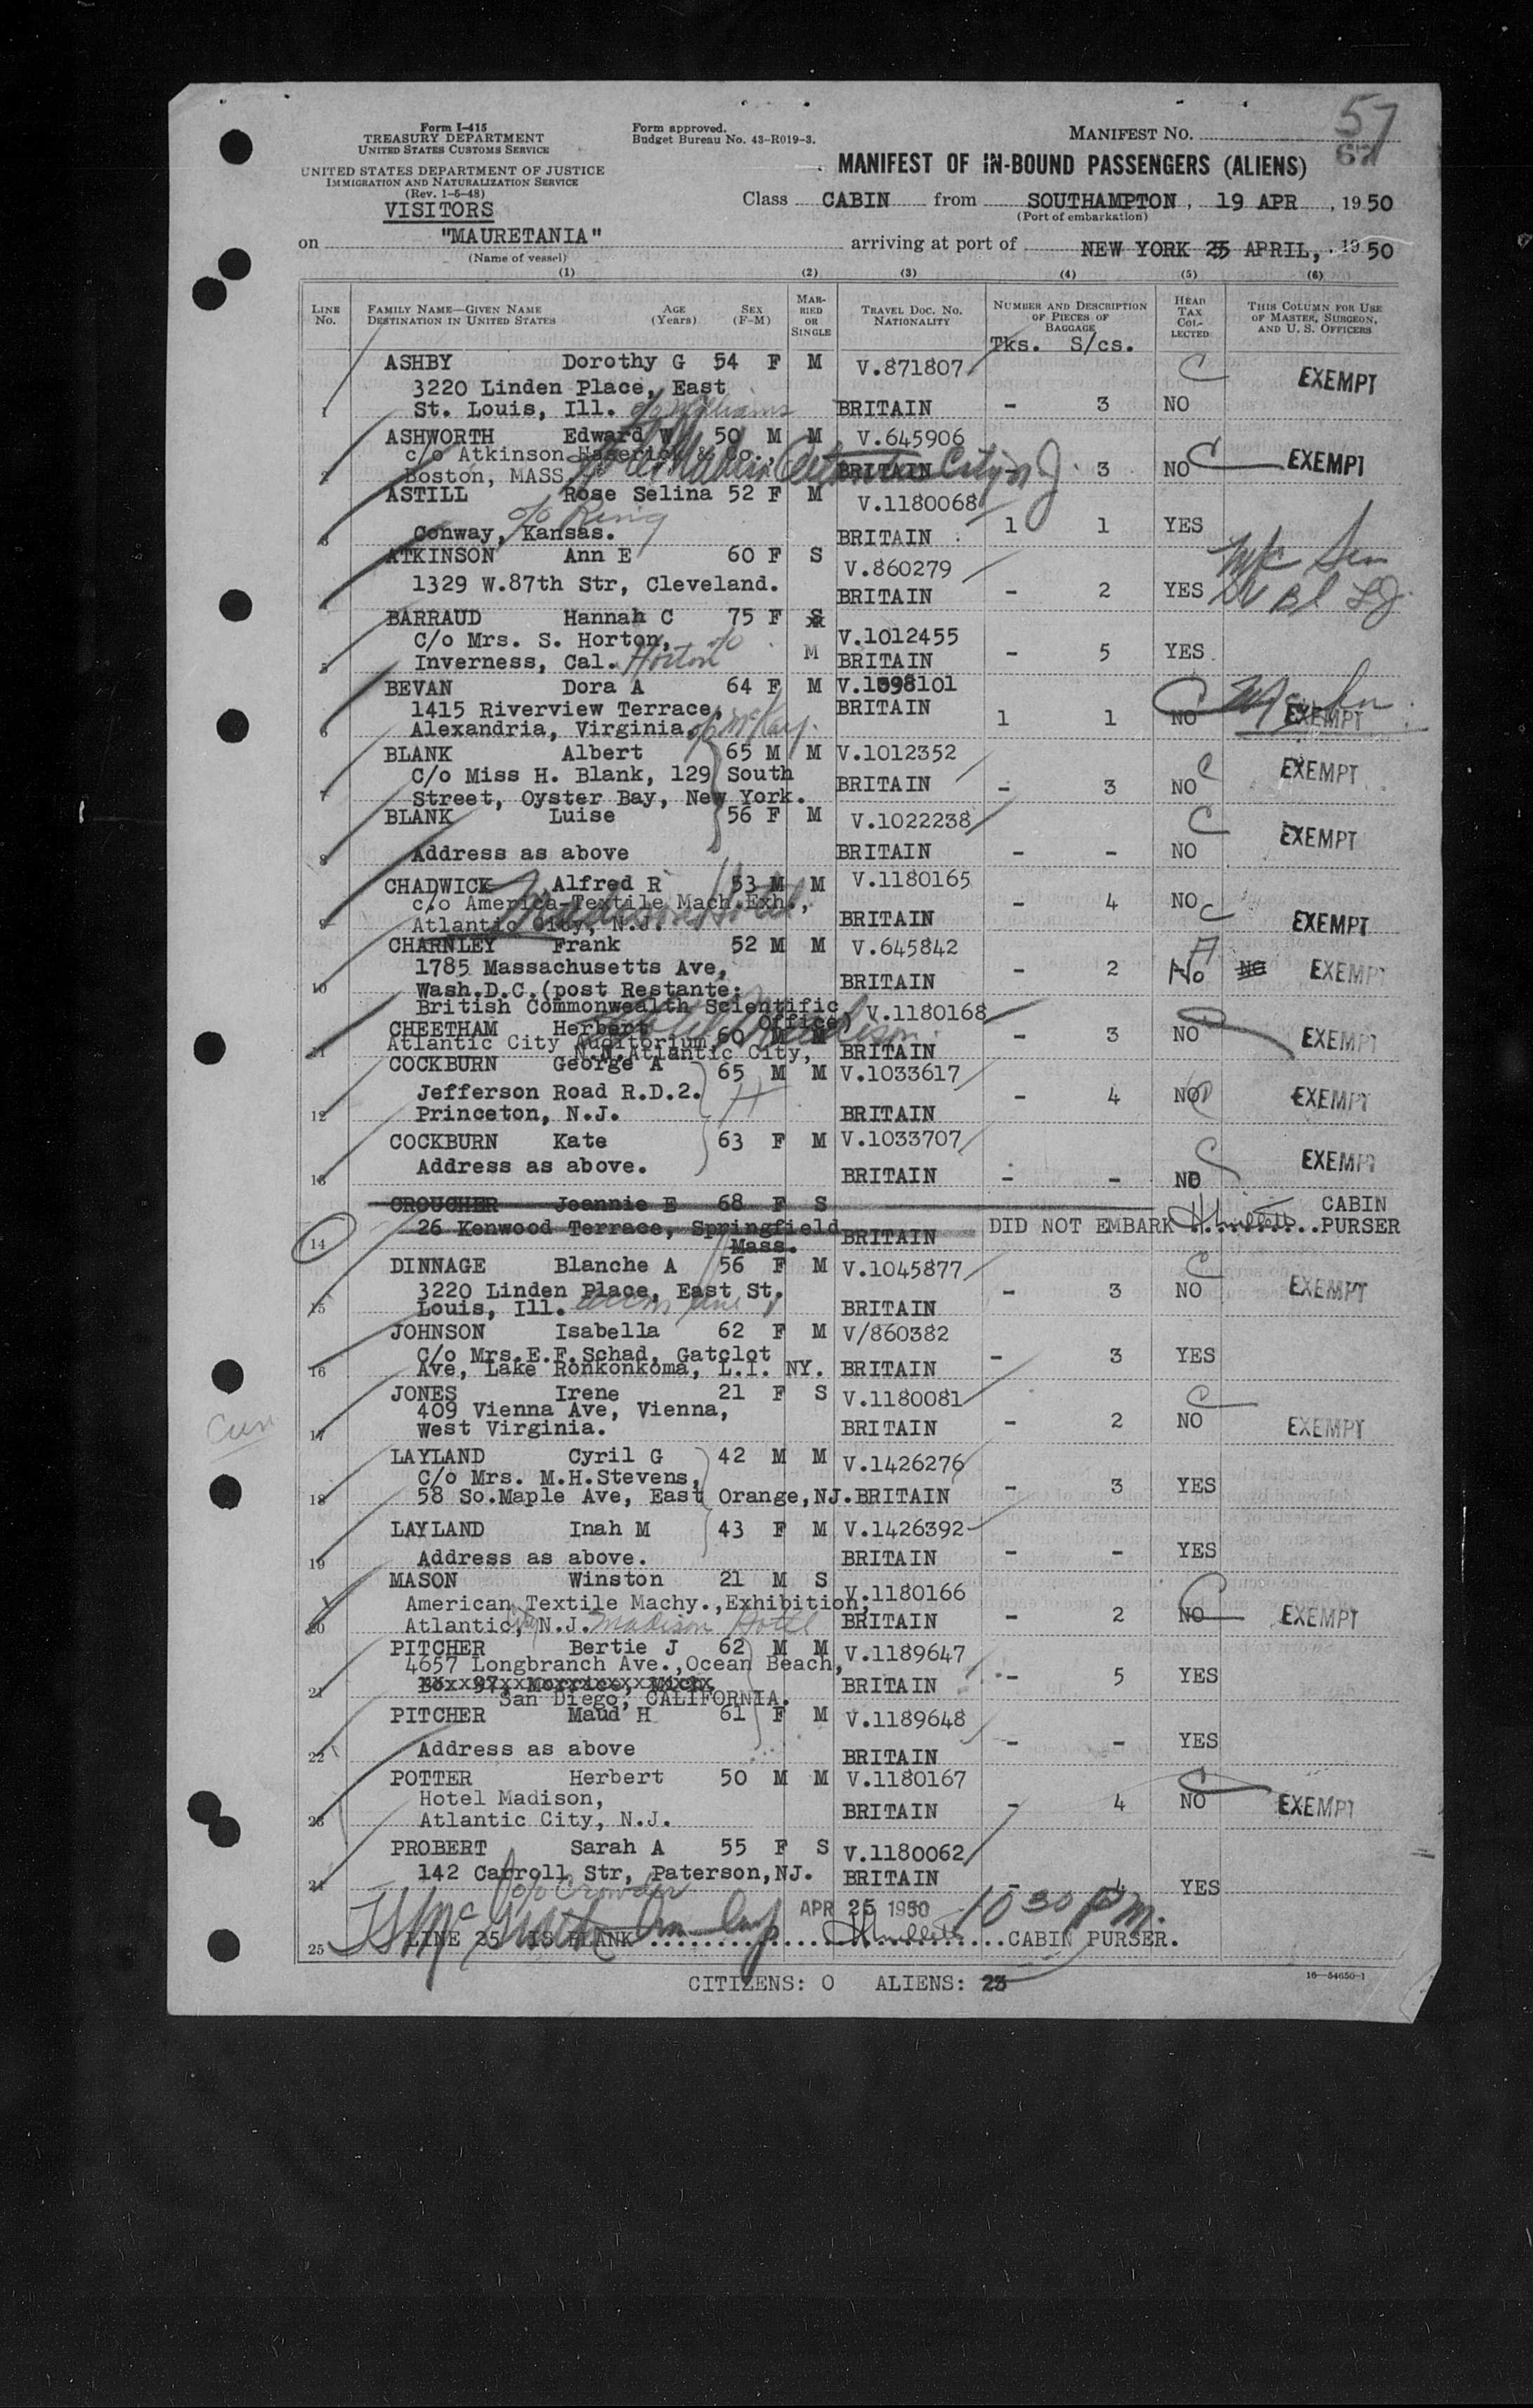 57
67
Form I-415
TREASURY DEPARTMENT
UNITED STATES CUSTOMS SERVICE
Form approved.
Budget Bureau No. 43-R019-3.
MANIFEST NO.
UNITED STATES DEPARTMENT OF JUSTICE
IMMIGRATION AND NATURALIZATION SERVICE
(Rev. 1-5-48)
VISITORS
MANIFEST OF IN-BOUND PASSENGERS (ALIENS)
Class CABIN from SOUTHAMPTON, 19 APR, 1950
(Port of embarkation)
on "MAURETANIA" arriving at port of NEW YORK 25 APRIL, 1950
(Name of vessel)
(1) (2) (3) (4) (5) (6)
LINE No. FAMILY NAME—GIVEN NAME DESTINATION IN UNITED STATES AGE (Years) SEX (F-M) MARRIED OR SINGLE TRAVEL DOC. NO. NATIONALITY NUMBER AND DESCRIPTION OF PIECES OF BAGGAGE HEAD TAX COLLECTED THIS COLUMN FOR USE OF MASTER, SURGEON, AND U. S. OFFICERS
Tks. S/cs.
ASHBY Dorothy G 54 F M V.871807 C EXEMPT
3220 Linden Place, East
1 St. Louis, Ill. c/o Williams BRITAIN - 3 NO
ASHWORTH Edward W 50 M M V.645906
c/o Atkinson Haserick & Co., Atlantic City NJ
2 Boston, MASS BRITAIN - 3 NO C EXEMPT
ASTILL Rose Selina 52 F M V.1180068
c/o Ring
3 Conway, Kansas. BRITAIN 1 1 YES
ATKINSON Ann E 60 F S V.860279
4 1329 W.87th Str, Cleveland. BRITAIN - 2 YES
BARRAUD Hannah C 75 F S
C/o Mrs. S. Horton, c/o V.1012455
5 Inverness, Cal. Horton M BRITAIN - 5 YES
BEVAN Dora A 64 F M V.1098101
1415 Riverview Terrace, BRITAIN
6 Alexandria, Virginia c/o McKay. 1 1 NO C EXEMPT
BLANK Albert 65 M M V.1012352
C/o Miss H. Blank, 129 South
7 Street, Oyster Bay, New York. BRITAIN - 3 NO C EXEMPT
BLANK Luise 56 F M V.1022238
8 Address as above BRITAIN - - NO C EXEMPT
CHADWICK Alfred R 53 M M V.1180165
c/o America-Textile Mach.Exh., Madison Hotel
9 Atlantic City, N.J. BRITAIN - 4 NO C EXEMPT
CHARNLEY Frank 52 M M V.645842
1785 Massachusetts Ave,
10 Wash.D.C.(post Restante: BRITAIN - 2 No NO EXEMPT
British Commonwealth Scientific Office) V.1180168
11 CHEETHAM Herbert 60 M M Hotel Madison - 3 NO EXEMPT
Atlantic City Auditorium, N.N.Atlantic City, BRITAIN
COCKBURN George A 65 M M V.1033617
Jefferson Road R.D.2. H
12 Princeton, N.J. BRITAIN - 4 NO EXEMPT
COCKBURN Kate 63 F M V.1033707
13 Address as above. BRITAIN - - NO C EXEMPT
CROUCHER Joannie E 68 F S
14 26 Kenwood Terrace, Springfield Mass. BRITAIN DID NOT EMBARK CABIN PURSER
DINNAGE Blanche A 56 F M V.1045877
3220 Linden Place, East St.
15 Louis, Ill. BRITAIN - 3 NO C EXEMPT
JOHNSON Isabella 62 F M V/860382
C/o Mrs.E.F.Schad, Gatclot
16 Ave, Lake Ronkonkoma, L.I. NY. BRITAIN - 3 YES
JONES Irene 21 F S V.1180081
409 Vienna Ave, Vienna,
17 West Virginia. BRITAIN - 2 NO C EXEMPT
LAYLAND Cyril G 42 M M V.1426276
C/o Mrs. M.H.Stevens,
18 58 So.Maple Ave, East Orange,NJ. BRITAIN - 3 YES
LAYLAND Inah M 43 F M V.1426392
19 Address as above. BRITAIN - - YES
MASON Winston 21 M S V.1180166
American Textile Machy.,Exhibition,
20 Atlantic, City N.J. Madison Hotel BRITAIN - 2 NO C EXEMPT
PITCHER Bertie J 62 M M V.1189647
4657 Longbranch Ave.,Ocean Beach,
21 Box 97, Morrice, Mich, BRITAIN - 5 YES
San Diego, CALIFORNIA.
PITCHER Maud H 61 F M V.1189648
22 Address as above BRITAIN - - YES
POTTER Herbert 50 M M V.1180167
Hotel Madison,
23 Atlantic City, N.J. BRITAIN - 4 NO C EXEMPT
PROBERT Sarah A 55 F S V.1180062
24 142 Carroll Str, Paterson,NJ. BRITAIN - 4 YES
c/o Crowder
APR 25 1950 10 30 PM.
25 LINE 25 IS BLANK CABIN PURSER.
CITIZENS: 0 ALIENS: 23
16—54650-1